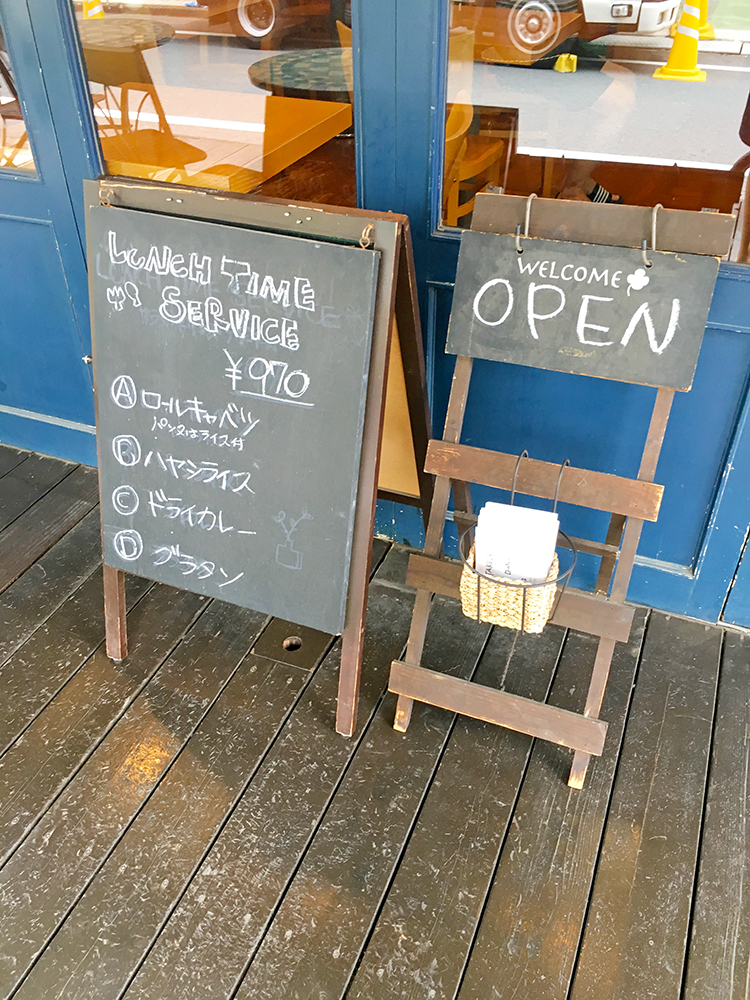 LUNCH TIME
SERVICE
¥970
Ⓐ ロールキャベツ
パン又はライス付
Ⓑ ハヤシライス
Ⓒ ドライカレー
Ⓓ グラタン
WELCOME
OPEN